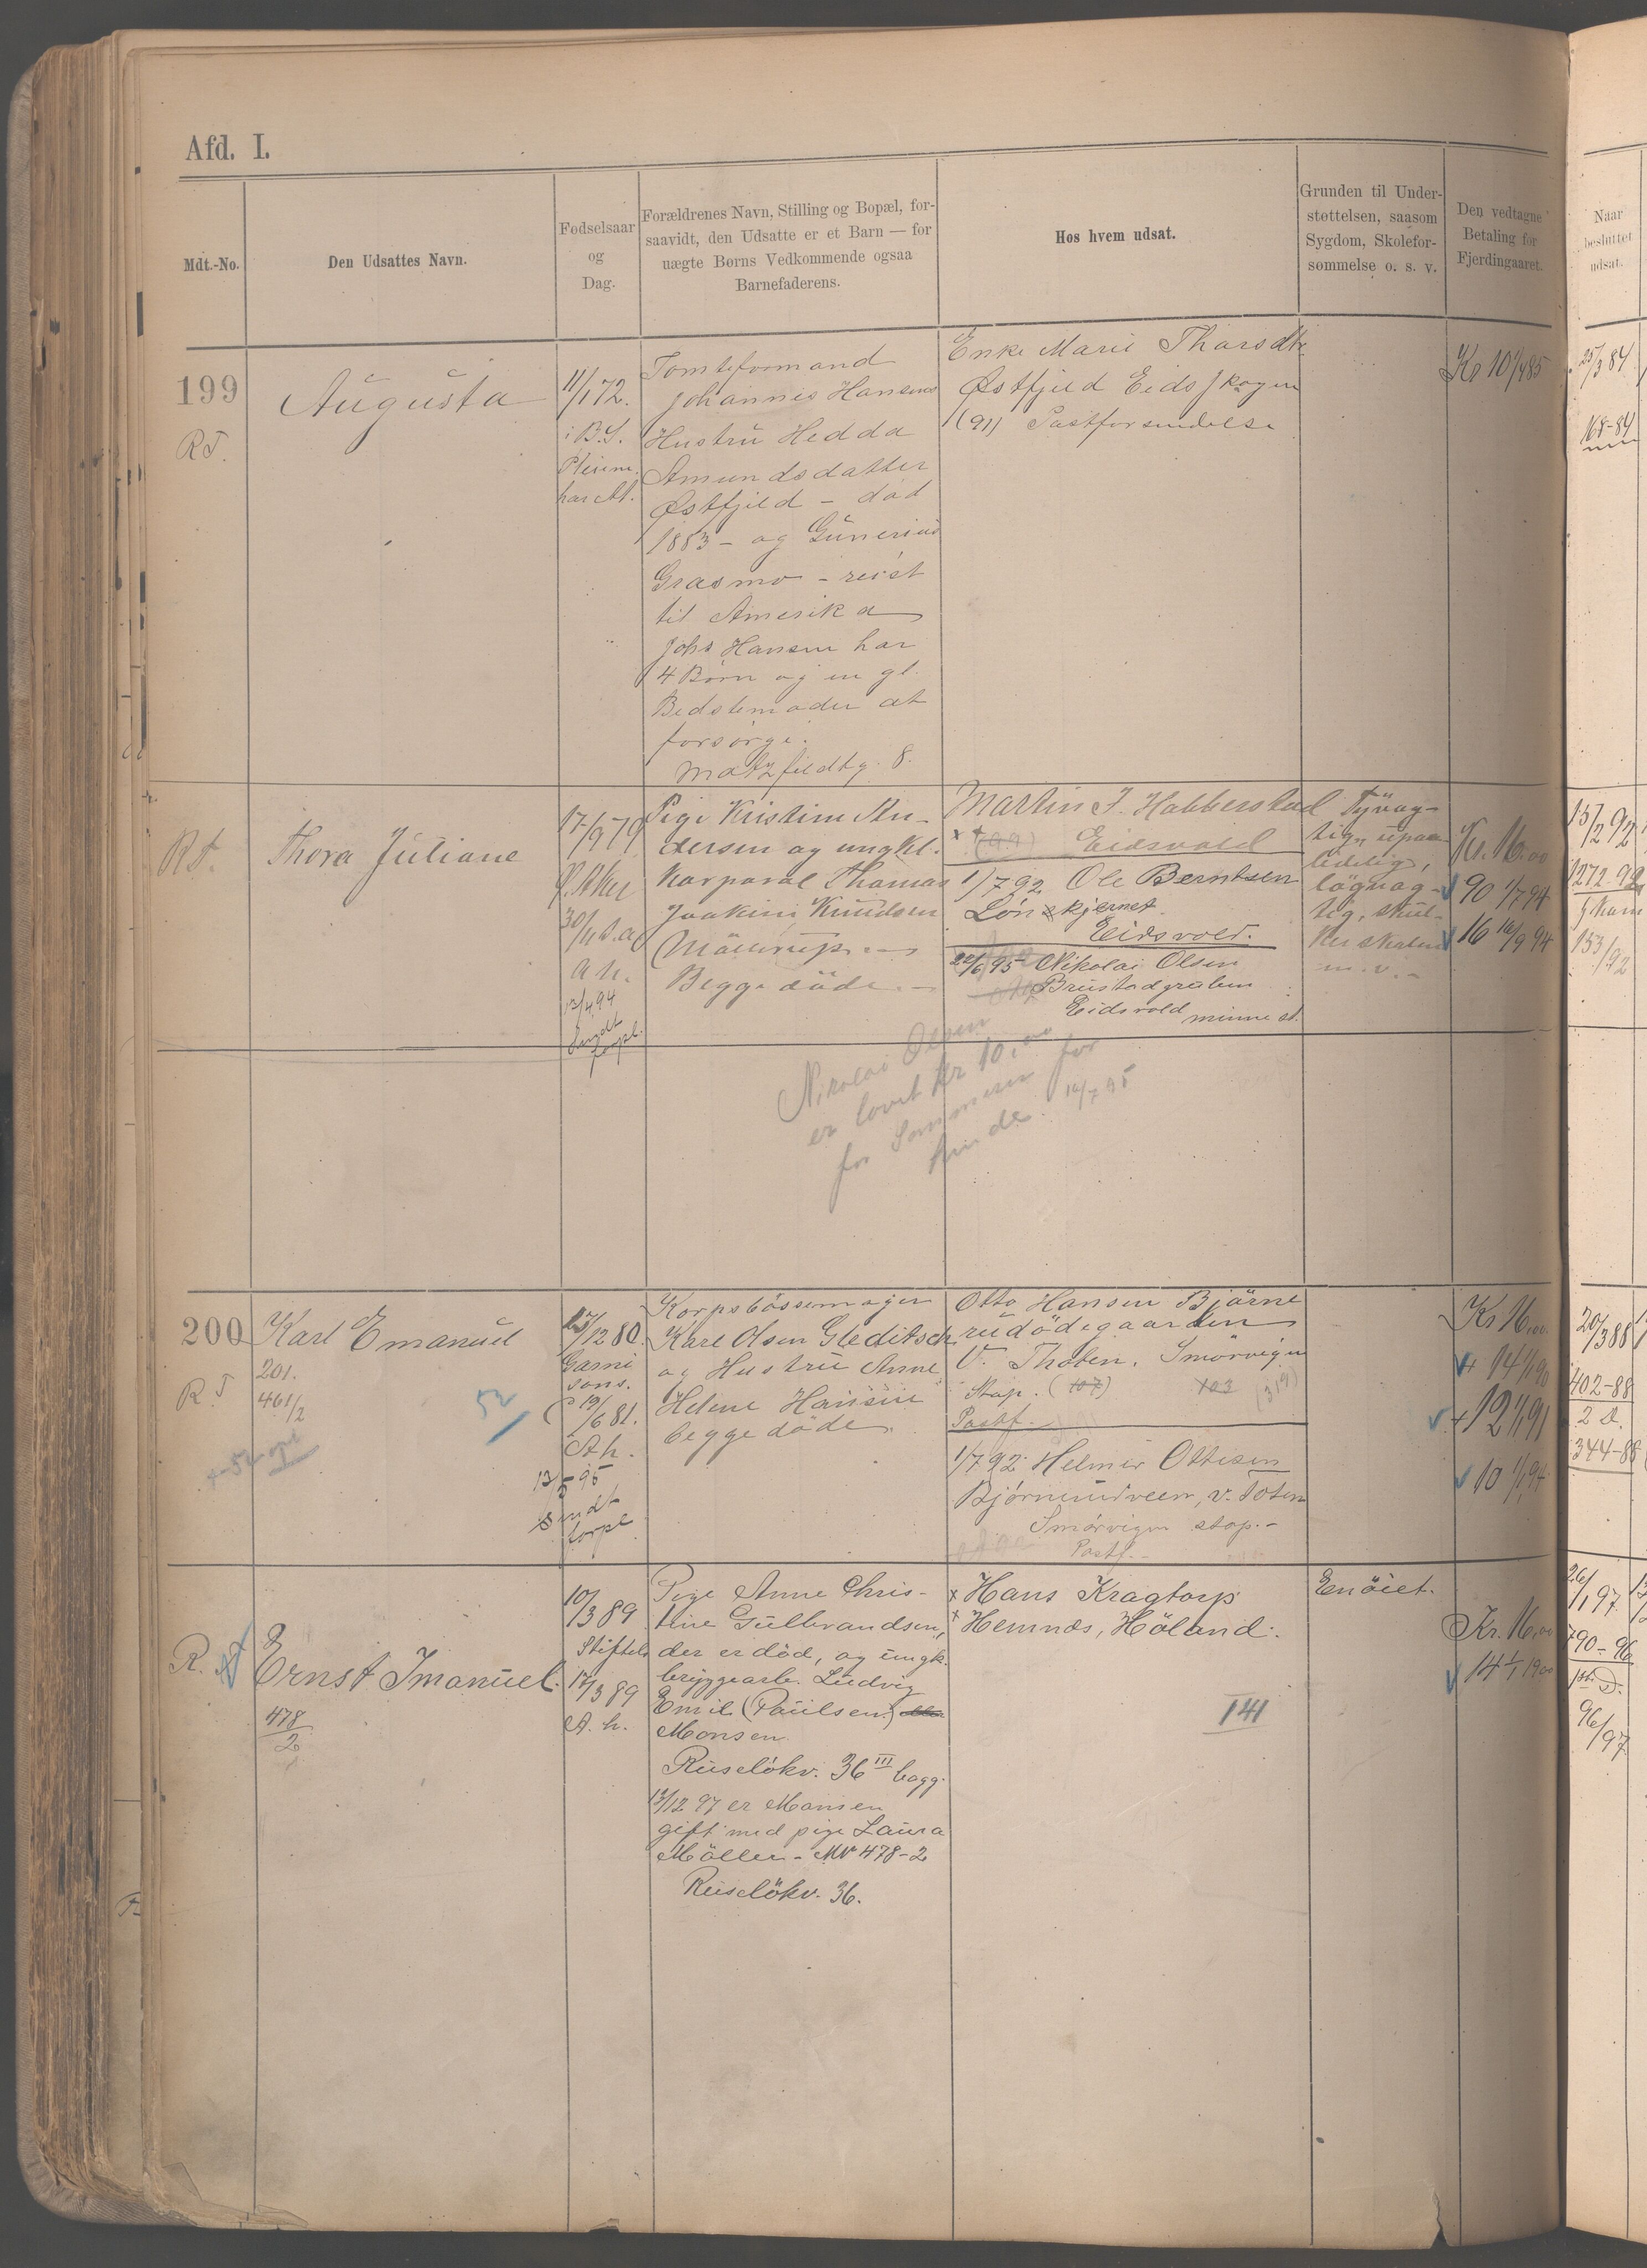 Afd. I.
Mdt.-No.
Den Udsattes Navn.
Fødselsaar
og
Dag.
Forældrenes Navn, Stilling og Bopæl, for-
saavidt, den Udsatte er et Barn — for
uægte Børns Vedkommende ogsaa
Barnefaderens.
Hos hvem udsat.
Grunden til Under-
støttelsen, saasom
Sygdom, Skolefor-
sømmelse o. s. v.
Den vedtagne
Betaling for
Fjerdingaaret.
Naar
besluttet
udsat.
199
R T.
Augusta
11/1 72.
i B. S.
Pleiem.
har Att.
Tomteformand
Johannis Hansens
Hustru Hedda
Amundsdatter
Østfjeld - død
1883 - og Gunerius
Grasmo - reist
til Amerika
Johs Hansen har
4 Børn og en gl.
Bedstemoder at
forsørge.
Enke Marie Tharsdtr.
Østfjeld Eidsskogen
(91) Postforsendelse
Kr 10 1/4 85
25/3 84
168-84
R T.
Thora Juliane
17/9 79
30/11 s. a.
A h.
13/4 94
Sendt
Pige Kristine An-
dersen og ungkl.
Korporal Thomas
Joakim Knudsen
Mállerup.
Begge døde.
Martin J. Habberstad
Eidsvold
1/7 92 Ole Berntsen
Lønskjernet
Eidsvold.
22/6 95 Nikolai Olsen
Brustadgruben
Eidsvold minne st.
Tyvag-
tig, upaa-
lidelig,
løgnag-
tig, skul-
ker skolen
m. v. -
Kr. 16.00
90 1/7 94
16 16/9 94
15/2 92
1272-92
153/92
Nikolai Olsen
er lovet Kr 10.00
for Sommeren for
hende. 16/7 95
200
R T
Karl Emanuel
201.
461/2
52
/12 80.
Garni
sons.
19/6 81.
A h.
13/5 95
Sendt
Korpsbøssemager
Karl Olsen Gleditsch
og Hustru Anne
Helene Hansen
begge døde.
Otto Hansen Bjørne
rudødegaarden
V. Thoten. Smørvigen
Stop. (107) 103 (319)
Postf.
1/7 92 Helmer Ottesen
Bjørnerudveen, v. Toten
Smørvigen stop. -
Postf. -
Kr 16.00
+ 14 1/1 90
+ 12 1/1 91
10 1/1 94
20/3 88
402-88
2 D.
344-88
R. T
Ernst Imanuel.
478
2
10/3 89
Stiftels
17/3 89
A. h.
Pige Anne Chris-
tine Gulbrandsen,
der er død, og ungk.
bryggearb. Ludvig
Emil (Paulsen)
Monsen
Ruseløkv. 36 III bagg.
13/12 97 er Monsen
gift med pige Laura
Møller - MN 478-2
Ruseløkv. 36.
x Hans Kragtorp
+ Hemnæs, Høland.
141
Enøiet.
Kr. 16.00
14 1/1 1900
26/1 97
790-96
96/97